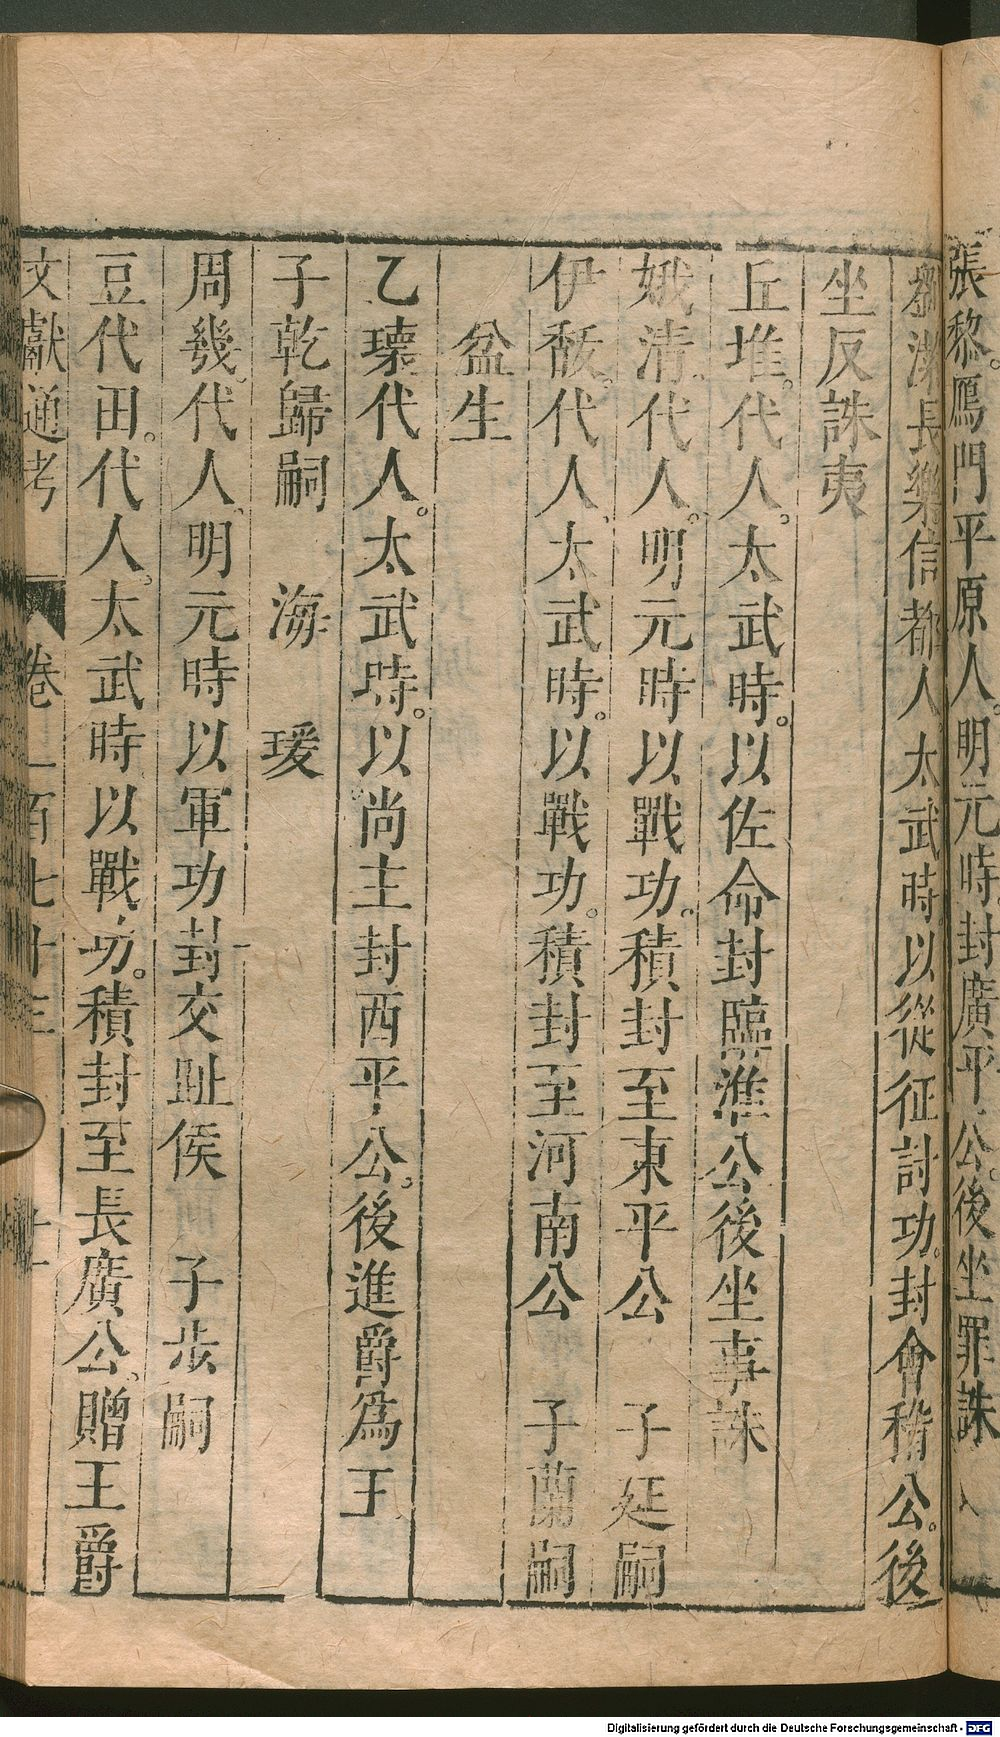 張黎。鴈門平原人。明元時。封廣平公。後坐罪誅
劉潔長樂信都人太武時以從征討功。封會稽公。後
坐反誅夷
丘堆。代人。太武時。以佐命封臨淮公後坐事誅
娥清。代人。明元時以戰功。積封至東平公 子延嗣
伊馛。代人。太武時。以戰功。積封至河南公 子蘭嗣
盆生
乙瓌代人。太武時。以尚主封西平公。後進爵為王
子乾歸嗣 海 瑗
周幾。代人。明元時以軍功封交趾侯 子步嗣
豆代田。代人。太武時以戰功。積封至長廣公。贈王爵
文獻通考 卷二百七十三
Digitalisierung gefördert durch die Deutsche Forschungsgemeinschaft - DFG